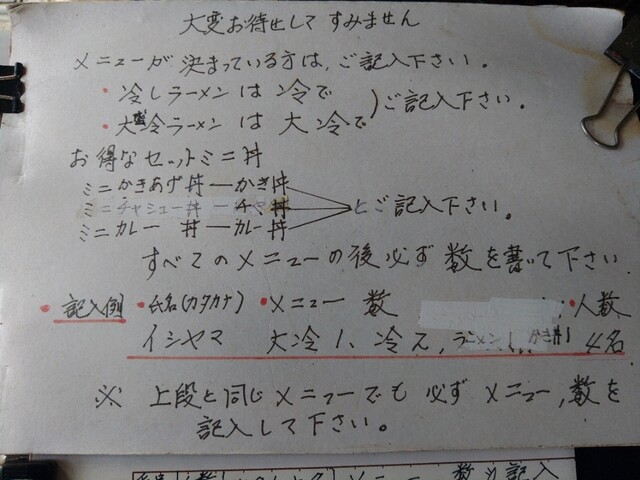 大変お待せして すみません
メニューが 決まっている方は、ご記入下さい。
・冷しラーメン は 冷で
)ご記入下さい。
・大盛冷ラーメン は 大冷で
お得なセットミニ丼
ミニかきあげ丼ーかき丼
ミニチャシュー丼ーチャ丼
とご記入下さい。
ミニカレー 丼ーカレー丼
すべてのメニューの後必ず数を書いて下さい
・記入例 ・氏名(カタカナ) ・メニュー 数 ・人数
イシヤマ 大冷1、冷2, ラーメン1, かき丼1 4名
※ 上段と同じメニューでも 必ず メニュー,数を
記入して下さい。
メニュー 数
記入